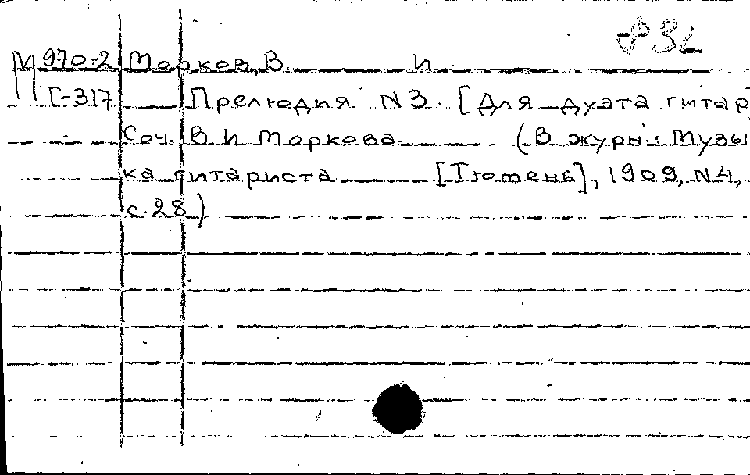 М 970-2 Марков, В. И
Г-317 Прелюдия N3. [Для дуэта гитар]
Соч. В И Маркова (В журн: Музы
ка гитариста [Тюмень], 1909, N4,
с.28)